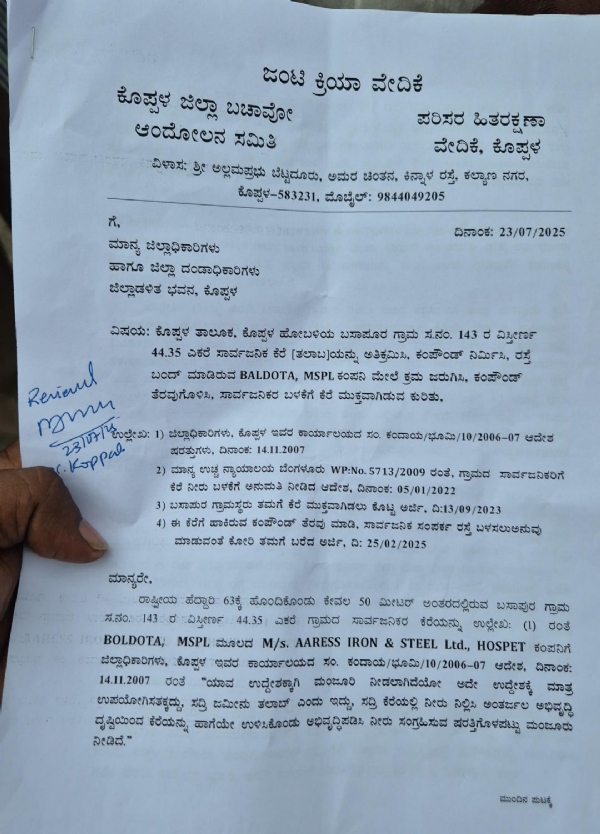 ಜಂಟಿ ಕ್ರಿಯಾ ವೇದಿಕೆ
ಕೊಪ್ಪಳ ಜಿಲ್ಲಾ ಬಚಾವೋ
ಆಂದೋಲನ ಸಮಿತಿ
ಪರಿಸರ ಹಿತರಕ್ಷಣಾ
ವೇದಿಕೆ, ಕೊಪ್ಪಳ
ವಿಳಾಸ: ಶ್ರೀ ಅಲ್ಲಮಪ್ರಭು ಬೆಟ್ಟದೂರು, ಅಮರ ಚಿಂತನ, ಕಿನ್ನಾಳ ರಸ್ತೆ, ಕಲ್ಯಾಣ ನಗರ,
ಕೊಪ್ಪಳ-583231, ಮೊಬೈಲ್: 9844049205
ಗೆ,
ದಿನಾಂಕ: 23/07/2025
ಮಾನ್ಯ ಜಿಲ್ಲಾಧಿಕಾರಿಗಳು
ಹಾಗೂ ಜಿಲ್ಲಾ ದಂಡಾಧಿಕಾರಿಗಳು
ಜಿಲ್ಲಾಡಳಿತ ಭವನ, ಕೊಪ್ಪಳ
ವಿಷಯ: ಕೊಪ್ಪಳ ತಾಲೂಕ, ಕೊಪ್ಪಳ ಹೋಬಳಿಯ ಬಸಾಪೂರ ಗ್ರಾಮ ಸ.ನಂ. 143 ರ ವಿಸ್ತೀರ್ಣ
44.35 ಎಕರೆ ಸಾರ್ವಜನಿಕ ಕೆರೆ [ತಲಾಬ]ಯನ್ನು ಅತಿಕ್ರಮಿಸಿ, ಕಂಪೌಂಡ್ ನಿರ್ಮಿಸಿ, ರಸ್ತೆ
ಬಂದ್ ಮಾಡಿರುವ BALDOTA, MSPL ಕಂಪನಿ ಮೇಲೆ ಕ್ರಮ ಜರುಗಿಸಿ, ಕಂಪೌಂಡ್
ತೆರವುಗೊಳಿಸಿ, ಸಾರ್ವಜನಿಕರ ಬಳಕೆಗೆ ಕೆರೆ ಮುಕ್ತವಾಗಿಡುವ ಕುರಿತು.
23/07/25
Koppal
ಉಲ್ಲೇಖ: 1) ಜಿಲ್ಲಾಧಿಕಾರಿಗಳು, ಕೊಪ್ಪಳ ಇವರ ಕಾರ್ಯಾಲಯದ ಸಂ. ಕಂದಾಯ/ಭೂಮಿ/10/2006-07 ಆದೇಶ
ಷರತ್ತುಗಳು, ದಿನಾಂಕ: 14.11.2007
2) ಮಾನ್ಯ ಉಚ್ಚ ನ್ಯಾಯಾಲಯ ಬೆಂಗಳೂರ WP:No.5713/2009 ರಂತೆ, ಗ್ರಾಮದ ಸಾರ್ವಜನಿಕರಿಗೆ
ಕೆರೆ ನೀರು ಬಳಕೆಗೆ ಅನುಮತಿ ನೀಡಿದ ಆದೇಶ, ದಿನಾಂಕ: 05/01/2022
3) ಬಸಾಪುರ ಗ್ರಾಮಸ್ಥರು ತಮಗೆ ಕೆರೆ ಮುಕ್ತವಾಗಿಡಲು ಕೊಟ್ಟ ಅರ್ಜಿ, ದಿ:13/09/2023
4) ಈ ಕೆರೆಗೆ ಹಾಕಿರುವ ಕಂಪೌಂಡ್ ತೆರವು ಮಾಡಿ, ಸಾರ್ವಜನಿಕ ಸಂಪರ್ಕ ರಸ್ತೆ ಬಳಸಲುಅನುವು
ಮಾಡುವಂತೆ ಕೋರಿ ತಮಗೆ ಬರೆದ ಅರ್ಜಿ, ದಿ: 25/02/2025
ಮಾನ್ಯರೇ,
ರಾಷ್ಟ್ರೀಯ ಹೆದ್ದಾರಿ 63ಕ್ಕೆ ಹೊಂದಿಕೊಂಡು ಕೇವಲ 50 ಮೀಟರ್ ಅಂತರದಲ್ಲಿರುವ ಬಸಾಪುರ ಗ್ರಾಮ
ಸ.ನಂ. 143 ರ ವಿಸ್ತೀರ್ಣ 44.35 ಎಕರೆ ಗ್ರಾಮದ ಸಾರ್ವಜನಿಕರ ಕೆರೆಯನ್ನು ಉಲ್ಲೇಖ: (1) ರಂತೆ
BOLDOTA, MSPL ಮೂಲದ M/s. AARESS IRON & STEEL Ltd., HOSPET ಕಂಪನಿಗೆ
ಜಿಲ್ಲಾಧಿಕಾರಿಗಳು, ಕೊಪ್ಪಳ ಇವರ ಕಾರ್ಯಾಲಯದ ಸಂ. ಕಂದಾಯ/ಭೂಮಿ/10/2006-07 ಆದೇಶ, ದಿನಾಂಕ:
14.11.2007 ರಂತೆ "ಯಾವ ಉದ್ದೇಶಕ್ಕಾಗಿ ಮಂಜೂರಿ ನೀಡಲಾಗಿದೆಯೋ ಅದೇ ಉದ್ದೇಶಕ್ಕೆ ಮಾತ್ರ
ಉಪಯೋಗಿಸತಕ್ಕದ್ದು, ಸದ್ರಿ ಜಮೀನು ತಲಾಬ್ ಎಂದು ಇದ್ದು, ಸದ್ರಿ ಕೆರೆಯಲ್ಲಿ ನೀರು ನಿಲ್ಲಿಸಿ ಅಂತರ್ಜಲ ಅಭಿವೃದ್ಧಿ
ದೃಷ್ಟಿಯಿಂದ ಕೆರೆಯನ್ನು ಹಾಗೆಯೇ ಉಳಿಸಿಕೊಂಡು ಅಭಿವೃದ್ಧಿಪಡಿಸಿ ನೀರು ಸಂಗ್ರಹಿಸುವ ಷರತ್ತಿಗೊಳಪಟ್ಟು ಮಂಜೂರು
ನೀಡಿದೆ."
ಮುಂದಿನ ಪುಟಕ್ಕೆ